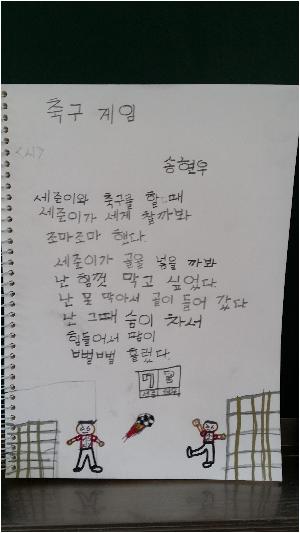 축구 게임
<시>
송현우
세준이와 축구를 할 때
세준이가 세게 찰까봐
조마조마 했다.
세준이가 골을 넣을 까봐
난 힘껏 막고 싶었다
난 못 막아서 골이 들어 갔다
난 그때 숨이 차서
힘들어서 땀이
뻘뻘 흘렀다.